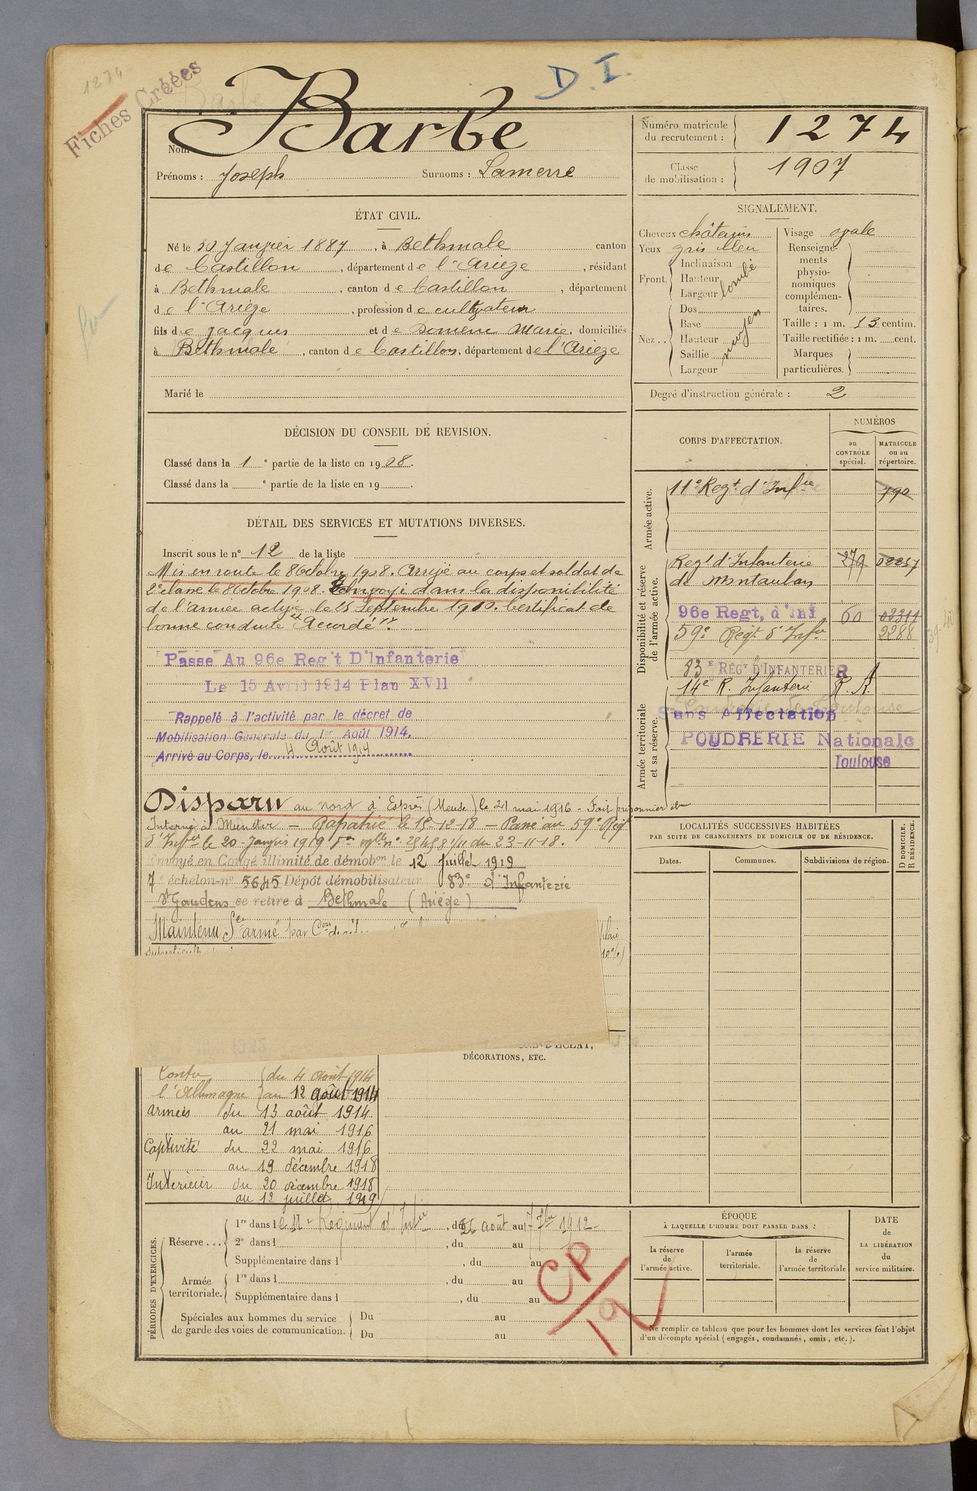 1274
Fiches Créées
D.I.
Nom Barbe
Prénoms : Joseph Surnoms : Lamerre
Numéro matricule du recrutement : 1274
Classe de mobilisation : 1907
ÉTAT CIVIL.
Né le 20 Janvier 1887, à Bethmale canton
de Castillon, département de l'Ariège, résidant
à Bethmale, canton de Castillon, département
de l'Ariège, profession de cultivateur
fils de Jacques et de Domenc Marie, domiciliés
à Bethmale, canton de Castillon, département de l'Ariège
Marié le
SIGNALEMENT.
Cheveux châtains
Yeux gris bleu
Front Inclinaison
Hauteur
Largeur bombé
Nez Dos
Base
Hauteur moyen
Saillie
Largeur
Visage ovale
Renseignements physionomiques complémentaires.
Taille : 1 m. 53 centim.
Taille rectifiée : 1 m. cent.
Marques particulières.
Degré d'instruction générale : 2
DÉCISION DU CONSEIL DE REVISION.
Classé dans la 1e partie de la liste en 1908.
Classé dans la e partie de la liste en 19
DÉTAIL DES SERVICES ET MUTATIONS DIVERSES.
Inscrit sous le n° 12 de la liste
Mis en route le 8 Octobre 1908. Arrivé au corps et soldat de
2e classe le 8 Octobre 1908. Renvoyé dans la disponibilité
de l'armée active le 25 Septembre 1910. Certificat de
bonne conduite "Accordé".
Passé Au 96e Reg't D'Infanterie
Le 15 Avril 1914 Plan XVII
Rappelé à l'activité par le décret de
Mobilisation Générale du 1er Août 1914.
Arrivé au Corps, le 4 Août 1914
Disparu au nord d'Esnes (Meuse) le 21 mai 1916 - Fait prisonnier
Interné à Munster - Rapatrié le 19-12-18 - Passé au 59e Régt
d'Infie le 20 Janvier 1919 du 23-11-18.
Envoyé en Congé illimité de démobon le 12 Juillet 1919
7e échelon n° 5645 Dépôt démobilisateur 83e d'Infanterie
St Gaudens se retire à Bethmale (Ariège)
Maintenu Sce armé par Con
CORPS D'AFFECTATION.
NUMÉROS
au CONTROLE spécial.
MATRICULE ou au répertoire.
Armée active.
11e Regt d'Infie 790
Disponibilité et réserve de l'armée active.
Regt d'Infanterie de Montauban 279 02257
96e Regt, d'Inf 60 02311
59e Regt d'Infie 3288
83e RÉGt D'INFANTERIE R
14e R. Infanterie R. A
Armée territoriale et sa réserve.
Sans Affectation
POUDRERIE Nationale
Toulouse
LOCALITÉS SUCCESSIVES HABITÉES
PAR SUITE DE CHANGEMENTS DE DOMICILE OU DE RÉSIDENCE.
Dates.
Communes.
Subdivisions de région.
D DOMICILE.
R RÉSIDENCE.
D'ÉCLAT,
DÉCORATIONS, ETC.
Contre du 4 août 1914
l'Allemagne au 12 août 1914
armées du 13 août 1914
au 21 mai 1916
Captivité du 22 mai 1916
au 19 décembre 1918
Intérieur du 20 décembre 1918
au 12 juillet 1919
PÉRIODES D'EXERCICES.
Réserve
1re dans le 11e Régiment d'Infie, du 26 août au 7 7bre 1912
2e dans l, du au
Supplémentaire dans l, du au
Armée territoriale.
1re dans l, du au
Supplémentaire dans l, du au
Spéciales aux hommes du service
de garde des voies de communication.
Du au
Du au
CP/19
ÉPOQUE
À LAQUELLE L'HOMME DOIT PASSER DANS :
la réserve de l'armée active.
l'armée territoriale.
la réserve de l'armée territoriale
DATE
de
LA LIBÉRATION
du
service militaire.
Ne remplir ce tableau que pour les hommes dont les services font l'objet
d'un décompte spécial (engagés, condamnés, omis, etc.).